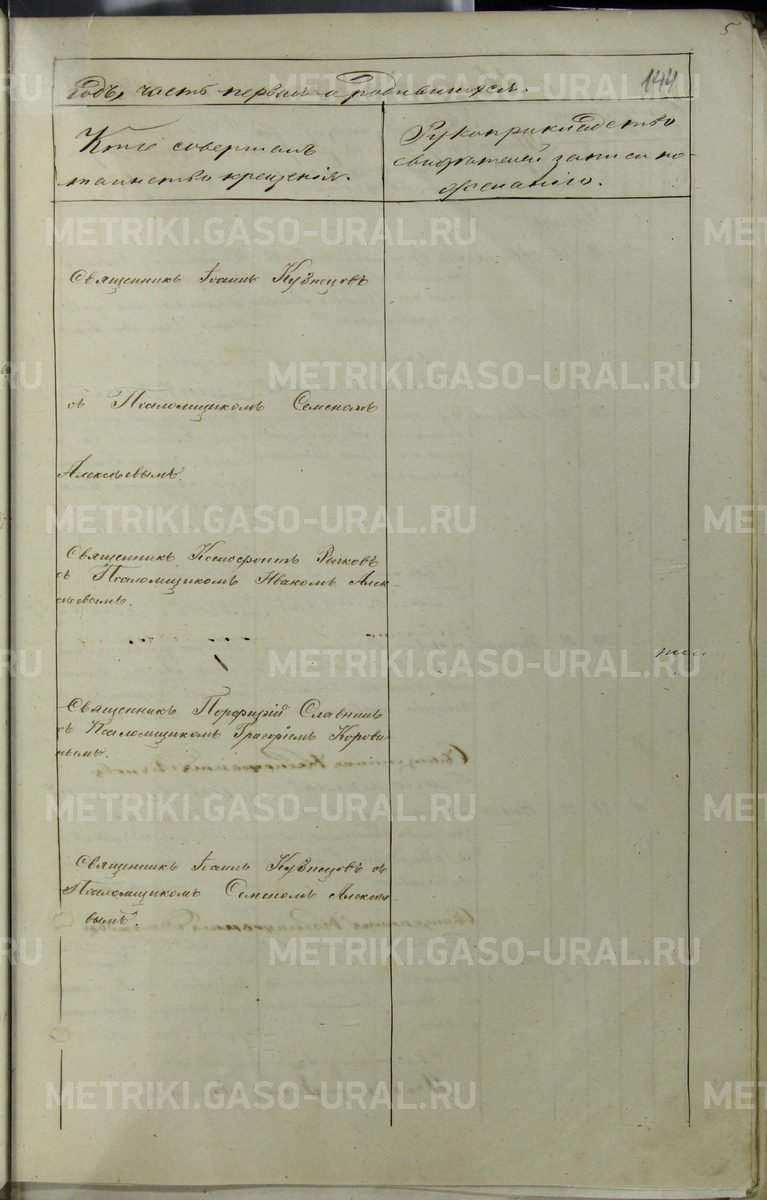 5
144
Годъ, часть первая о родившихся.
Кто совершалъ
таинство крещенія.
Рукоприкладство
свидѣтелей записи по
желанію.
Священникъ Іоаннъ Кузнецовъ
съ Псаломщикомъ Семеномъ
Алексѣевымъ.
Священникъ Ксенофонтъ Рычковъ
съ Псаломщикомъ Иваномъ Алек-
сѣевымъ.
Священникъ Порфирій Славнинъ
съ Псаломщикомъ Григоріемъ Корова-
нымъ.
Священникъ Іоаннъ Кузнецовъ съ
Псаломщикомъ Семеномъ Алексѣе-
вымъ.
METRIKI.GASO-URAL.RU